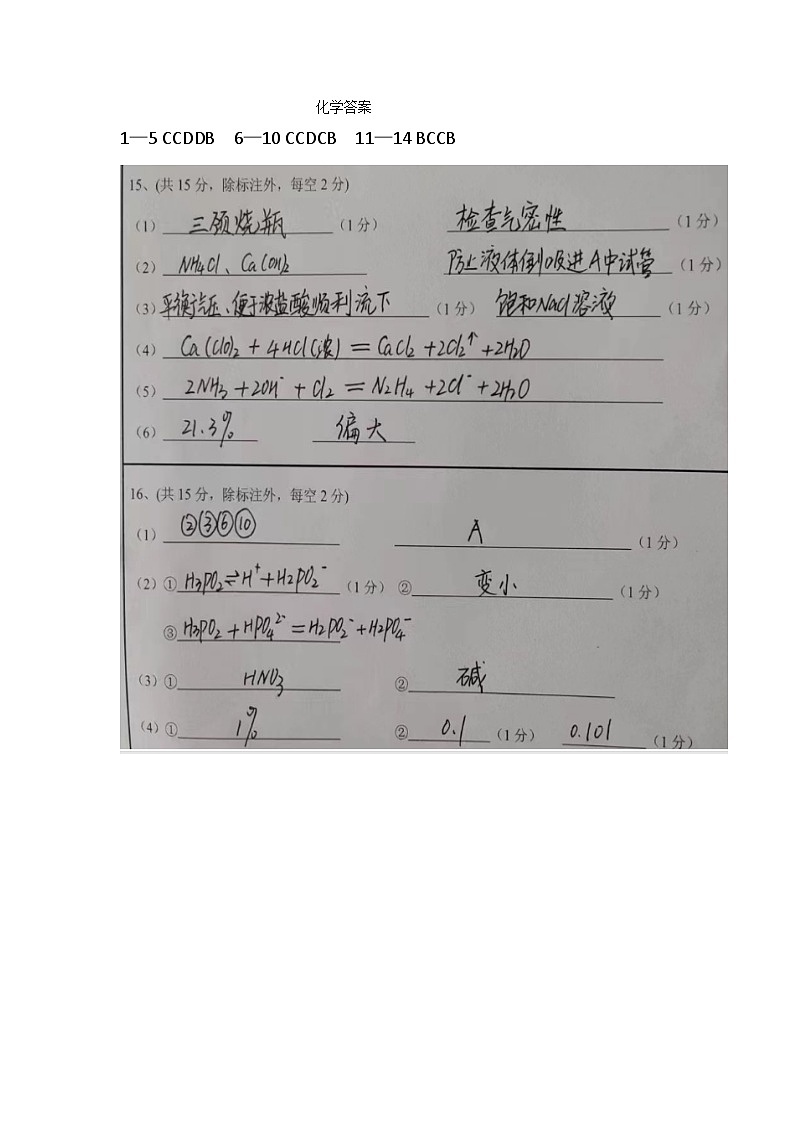 化学答案
1—5 CCDDB 6—10 CCDCB 11—14 BCCB
15、(共 15 分，除标注外，每空 2 分)
(1) 三颈烧瓶 (1 分) 检查气密性 (1 分)
(2) NH4Cl、Ca(OH)2 防止液体倒吸进A中试管 (1 分)
(3) 平衡气压、便于浓盐酸顺利流下 (1 分) 饱和NaCl溶液 (1 分)
(4) Ca(ClO)2 + 4HCl(浓) = CaCl2 + 2Cl2↑ + 2H2O
(5) 2NH3 + 2OH⁻ + Cl2 = N2H4 + 2Cl⁻ + 2H2O
(6) 21.3% 偏大
16、(共 15 分，除标注外，每空 2 分)
(1) ②③⑥⑩ A (1 分)
(2) ① H3PO2⇌H⁺+H2PO2⁻ (1 分) ② 变小 (1 分)
③ H3PO2 + HPO4²⁻ = H2PO2⁻ + H2PO4⁻
(3) ① HNO3 ② 碱
(4) ① 1% ② 0.1 (1 分) 0.101 (1 分)